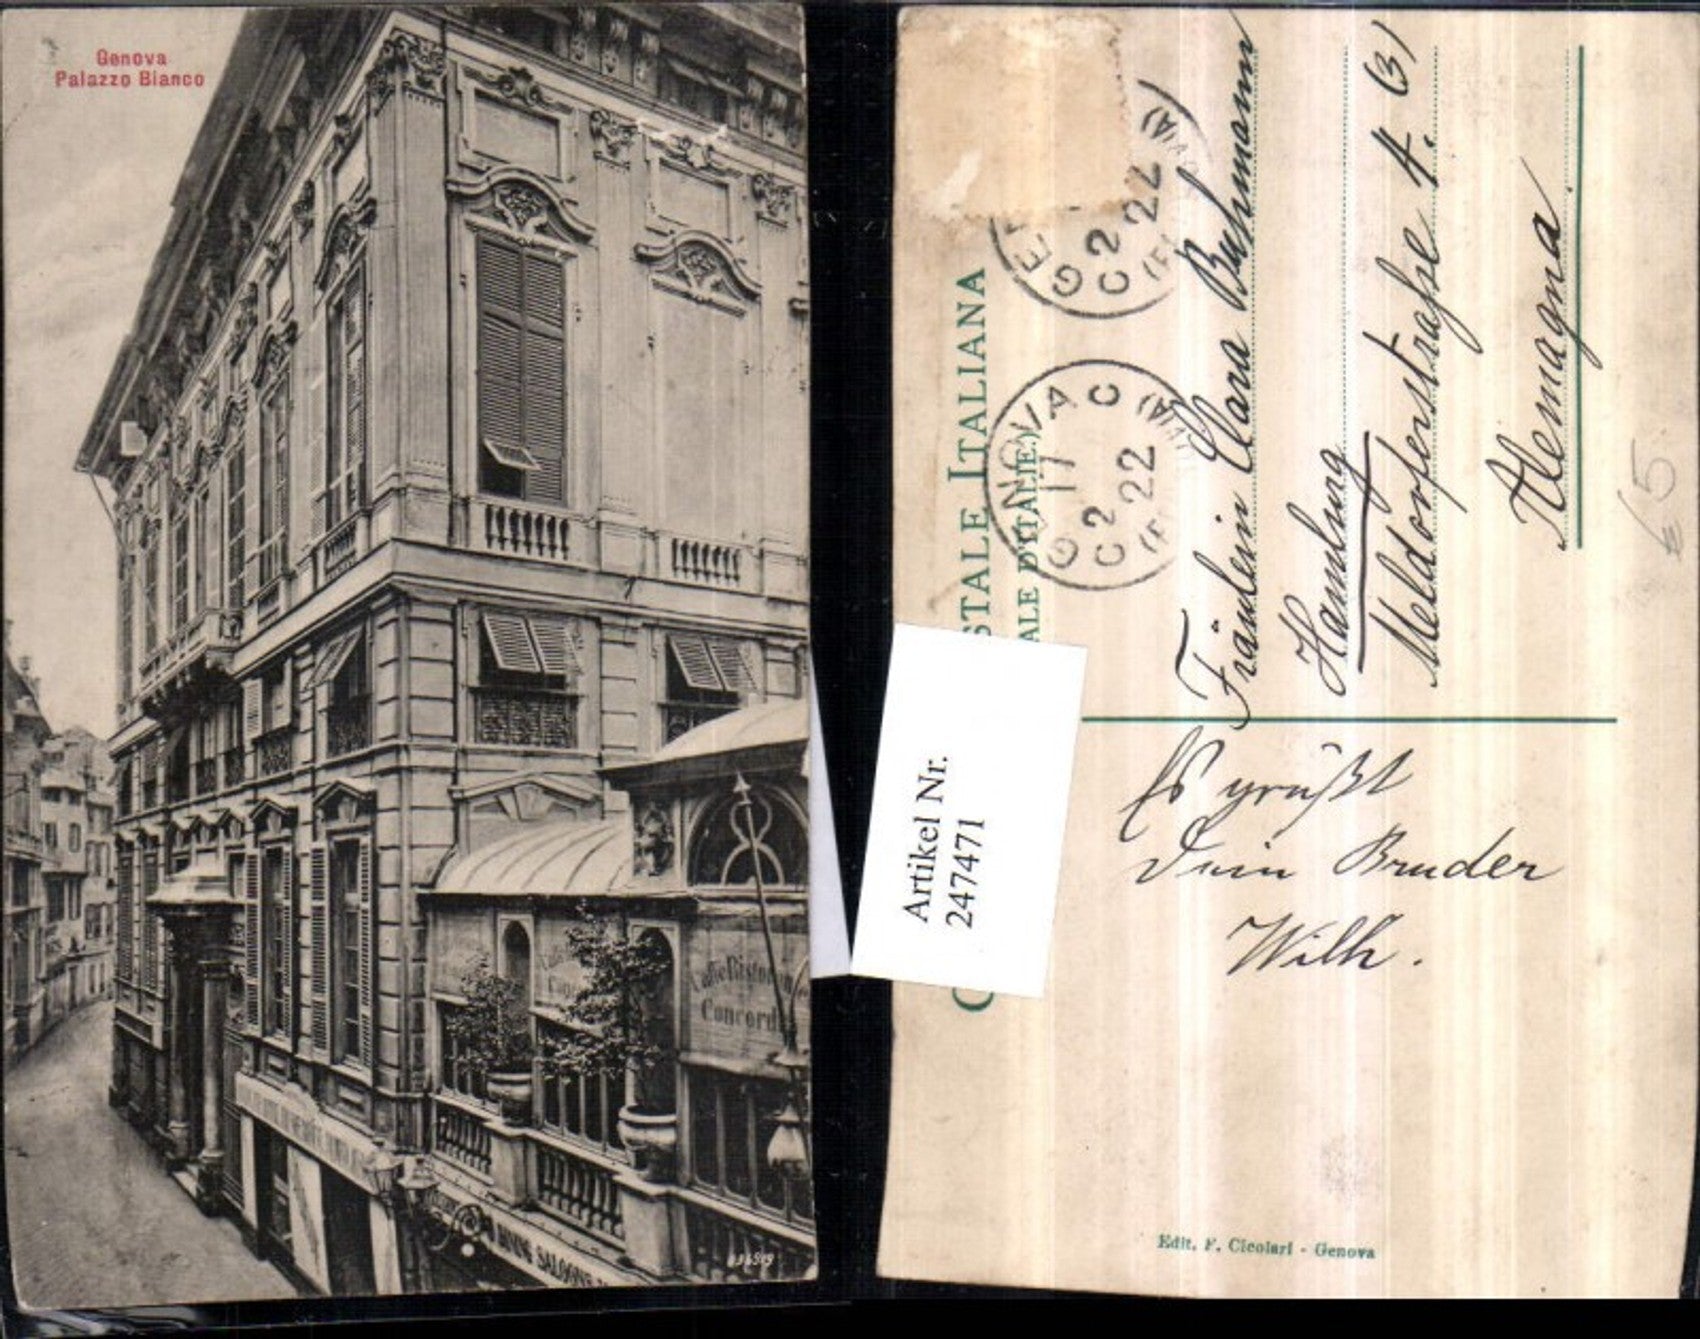 Genova
Palazzo Bianco
Caffè Ristor
Concord
SALO
Artikel Nr.
247471
STALE ITALIANA
ALE D'ITALIE)
GE
C2
22
GENOVA C
17
C2
22
Fräulein Clara Buhmann
Hamburg
Meldorferstraße 4. (3)
Alemagna
€5
Es grüßt
Dein Bruder
Wilh.
Edit. F. Cicolari - Genova